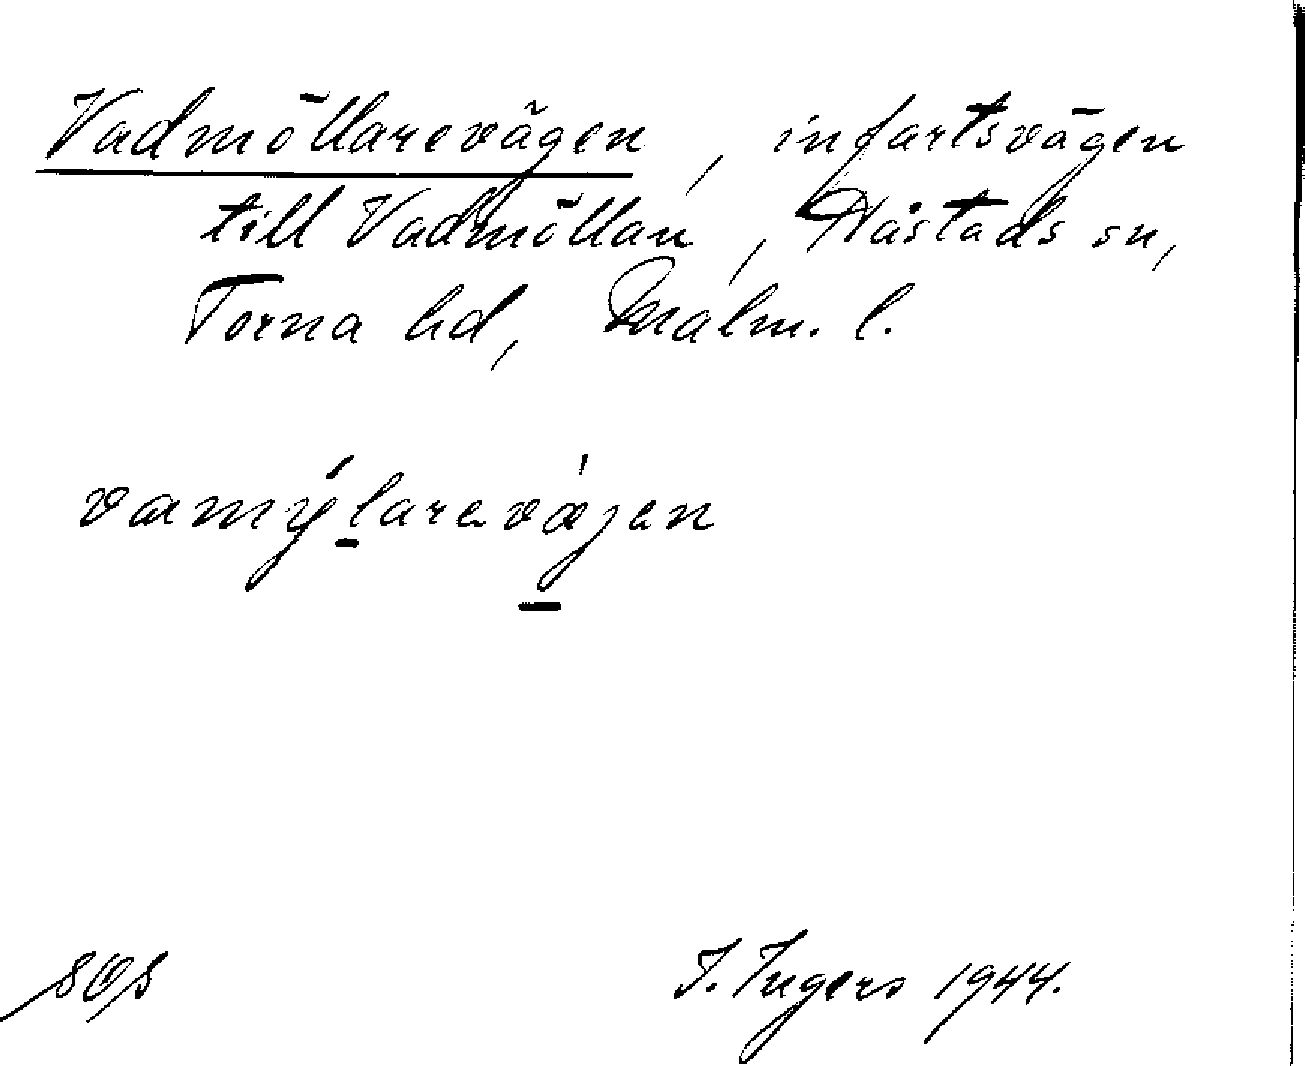 Vadmöllarevägen, infartsvägen
till Vadmöllan, Håstads sn,
Torna hd, Malm. l.
vamýlarevæ̀jen
I. Ingers 1944.